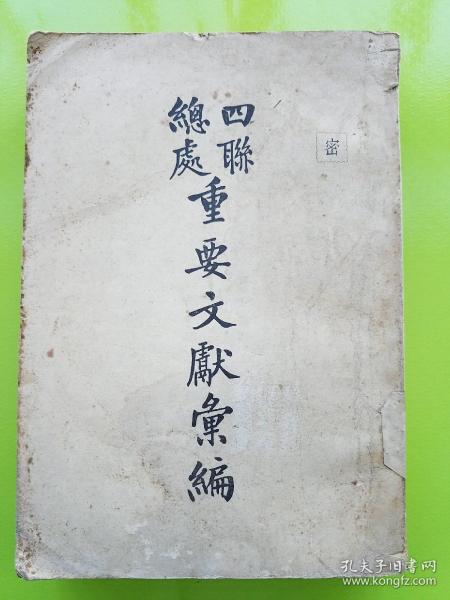 密
四聯
總處
重要文獻彙編
孔夫子旧书网
www.kongfz.com